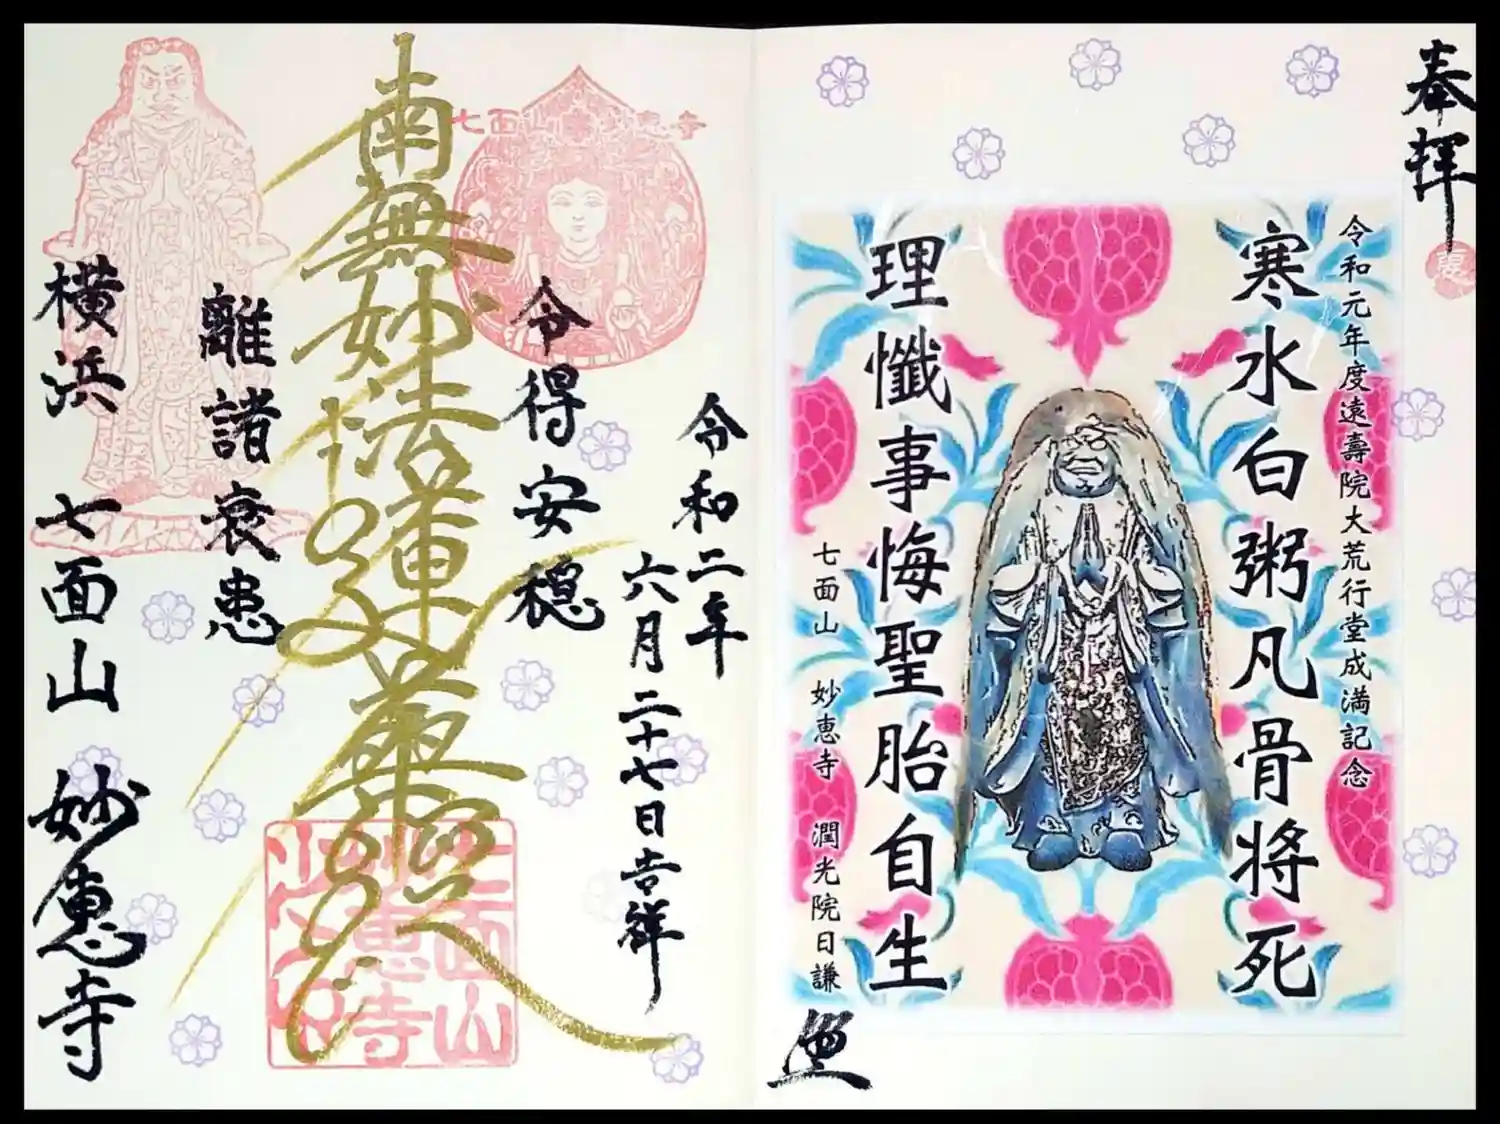 奉拝
令和元年度遠壽院大荒行堂成満記念
寒水白粥凡骨将死
理懺事悔聖胎自生
七面山 妙恵寺 潤光院日謙
令和二年
六月二十七日吉祥
令得安穏
南無妙法蓮華経
離諸衰患
横浜 七面山 妙恵寺
七面山妙恵寺